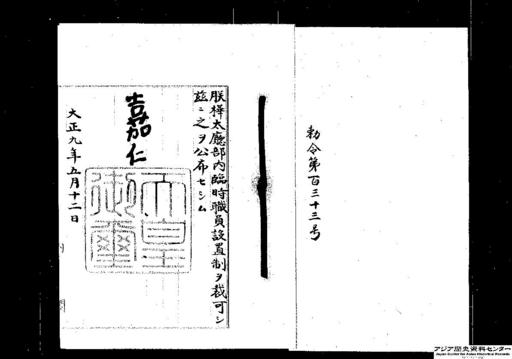 勅令第百三十三号
朕樺太廳部内臨時職員設置制ヲ裁可シ
茲ニ之ヲ公布セシム
嘉仁
天皇
御璽
大正九年五月十二日
アジア歴史資料センター
Japan Center for Asian Historical Records